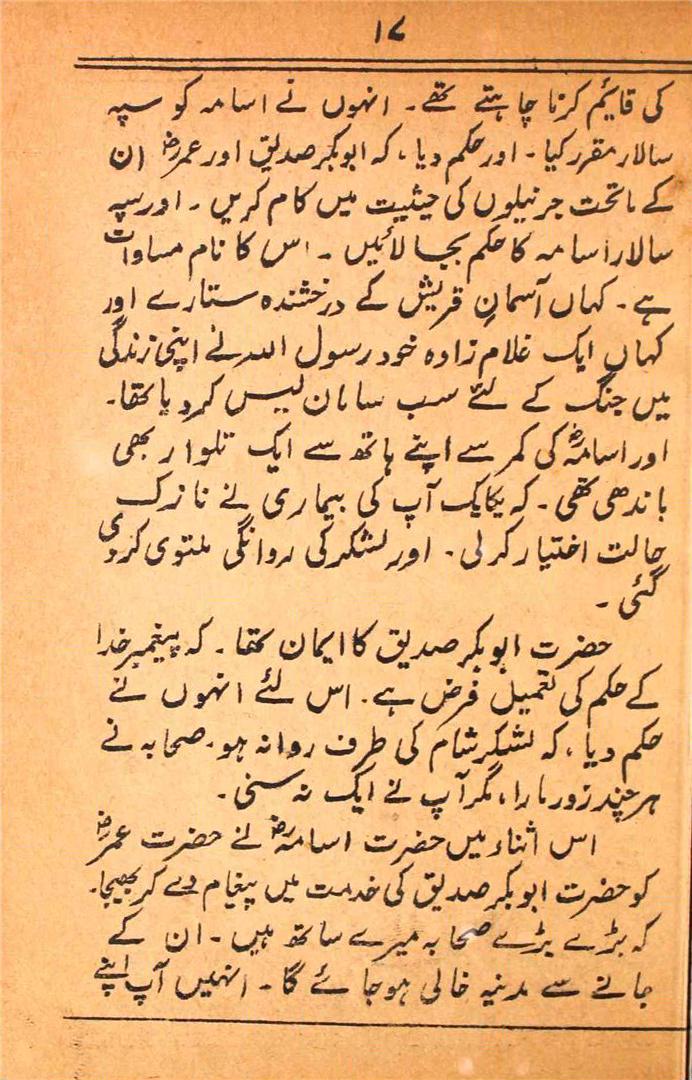 ۱۷
کی قائیم کرنا چاہتے تھے۔ انہوں نے اسامہ کو سپہ
سالار مقرر کیا۔ اور حکم دیا، کہ ابوبکر صدیق اور عمرؓ ان
کے ماتحت جرنیلوں کی حیثیت میں کام کریں۔ اور سپہ
سالار اسامہ کا حکم بجا لائیں۔ اس کا نام مساوات
ہے۔ کہاں آسمانِ قریش کے درخشندہ ستارے اور
کہاں ایک غلام زادہ خود رسول اللہ نے اپنی زندگی
میں جنگ کے لئے سب سامان لیس کر دیا تھا۔
اور اسامہؓ کی کمر سے اپنے ہاتھ سے ایک تلوار بھی
باندھی تھی۔ کہ یکایک آپ کی بیماری نے نازک
حالت اختیار کر لی۔ اور لشکر کی روانگی ملتوی کر دی
گئی۔
حضرت ابوبکر صدیق کا ایمان تھا۔ کہ پیغمبر خدا
کے حکم کی تعمیل فرض ہے۔ اس لئے انہوں نے
حکم دیا، کہ لشکر شام کی طرف روانہ ہو۔ صحابہ نے
ہر چند زور مارا، مگر آپ نے ایک نہ سنی۔
اس اثناء میں حضرت اسامہؓ نے حضرت عمرؓ
کو حضرت ابوبکر صدیق کی خدمت میں پیغام دے کر بھیجا۔
کہ بڑے بڑے صحابہ میرے ساتھ ہیں۔ ان کے
جانے سے مدنیہ خالی ہو جائے گا۔ انہیں آپ اپنے